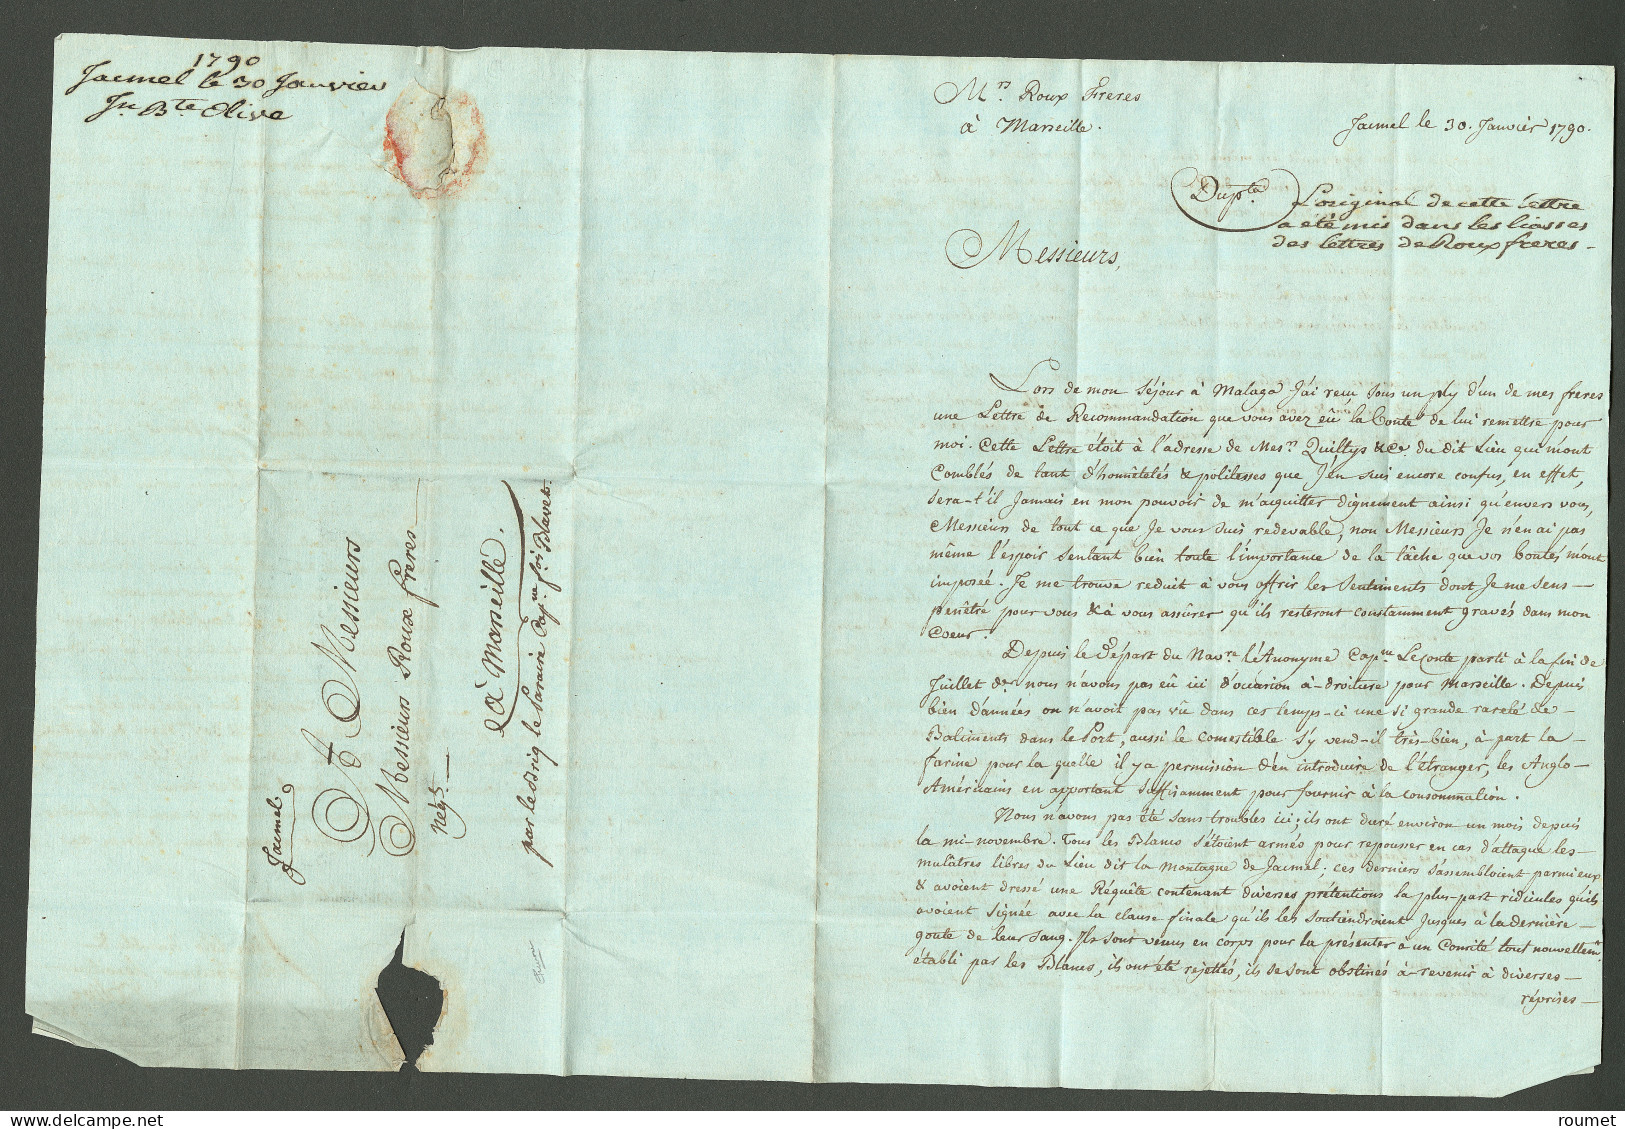 1790
Jacmel le 30 Janvier
Jn. Bte. Olive
A Messieurs
Messieurs Roux freres
Négts.
à Marseille.
Jacmel
par le Capne. fois. Blavet.
Mrs. Roux Freres
à Marseille.
Jacmel le 30. Janvier 1790.
Dupta.
L'original de cette lettre
a été mis dans les liasses
des lettres de Roux freres
Messieurs,
Lors de mon séjour à Malaga J'ai reçu sous un ply d'un de mes freres
une Lettre de Recommandation que vous avez eû la bonté de lui remettre pour
moi. Cette Lettre étoit à l'adresse de Mesrs. Quiltys & Ce. du dit Lieu qui m'ont
Comblés de tant d'honnêtetés & politesses que J'en suis encore confus, en effet,
sera-t'il Jamais en mon pouvoir de m'aquitter dignement ainsi qu'envers vous,
Messieurs de tout ce que Je vous suis redevable, non Messieurs Je n'en ai pas
même l'espoir sentant bien toute l'importance de la tâche que vos bontés m'ont
imposée. Je me trouve reduit à vous offrir les sentiments dont Je me sens
penêtré pour vous & à vous assûrer qu'ils resteront constamment gravés dans mon
Coeur.
Depuis le Départ du Navre. l'Anonyme Capne. Leconte parti à la fin de
Juillet dr. nous n'avons pas eû ici d'occasion à droiture pour Marseille. Depuis
bien d'années on n'avoit pas vû dans ces temps-ci une si grande rareté de
Batiments dans le Port, aussi le comestible s'y vend-il très-bien, à part la
farine pour la quelle il y a permission d'en introduire de l'étranger, les Anglo-
Américains en apportant suffisamment pour fournir à la consommation.
Nous n'avons pas été sans troubles ici; ils ont duré environ un mois depuis
la mi-novembre. Tous les Blancs s'étoient armés pour repousser en cas d'attaque les
mulâtres libres du Lieu dit la montagne de Jacmel; ces derniers s'assembloient parmi eux
& avoient dressé une Réquête contenant diverses prétentions la plus-part ridicules qu'ils
avoient signée avec la clause finale qu'ils les soutiendroient Jusques à la dernière
goute de leur sang. Ils sont venus en corps pour la présenter à un Comité tout nouvellemt.
établi par les Blancs, ils ont été rejettés, ils se sont obstinés à revenir à diverses
réprises
roumet